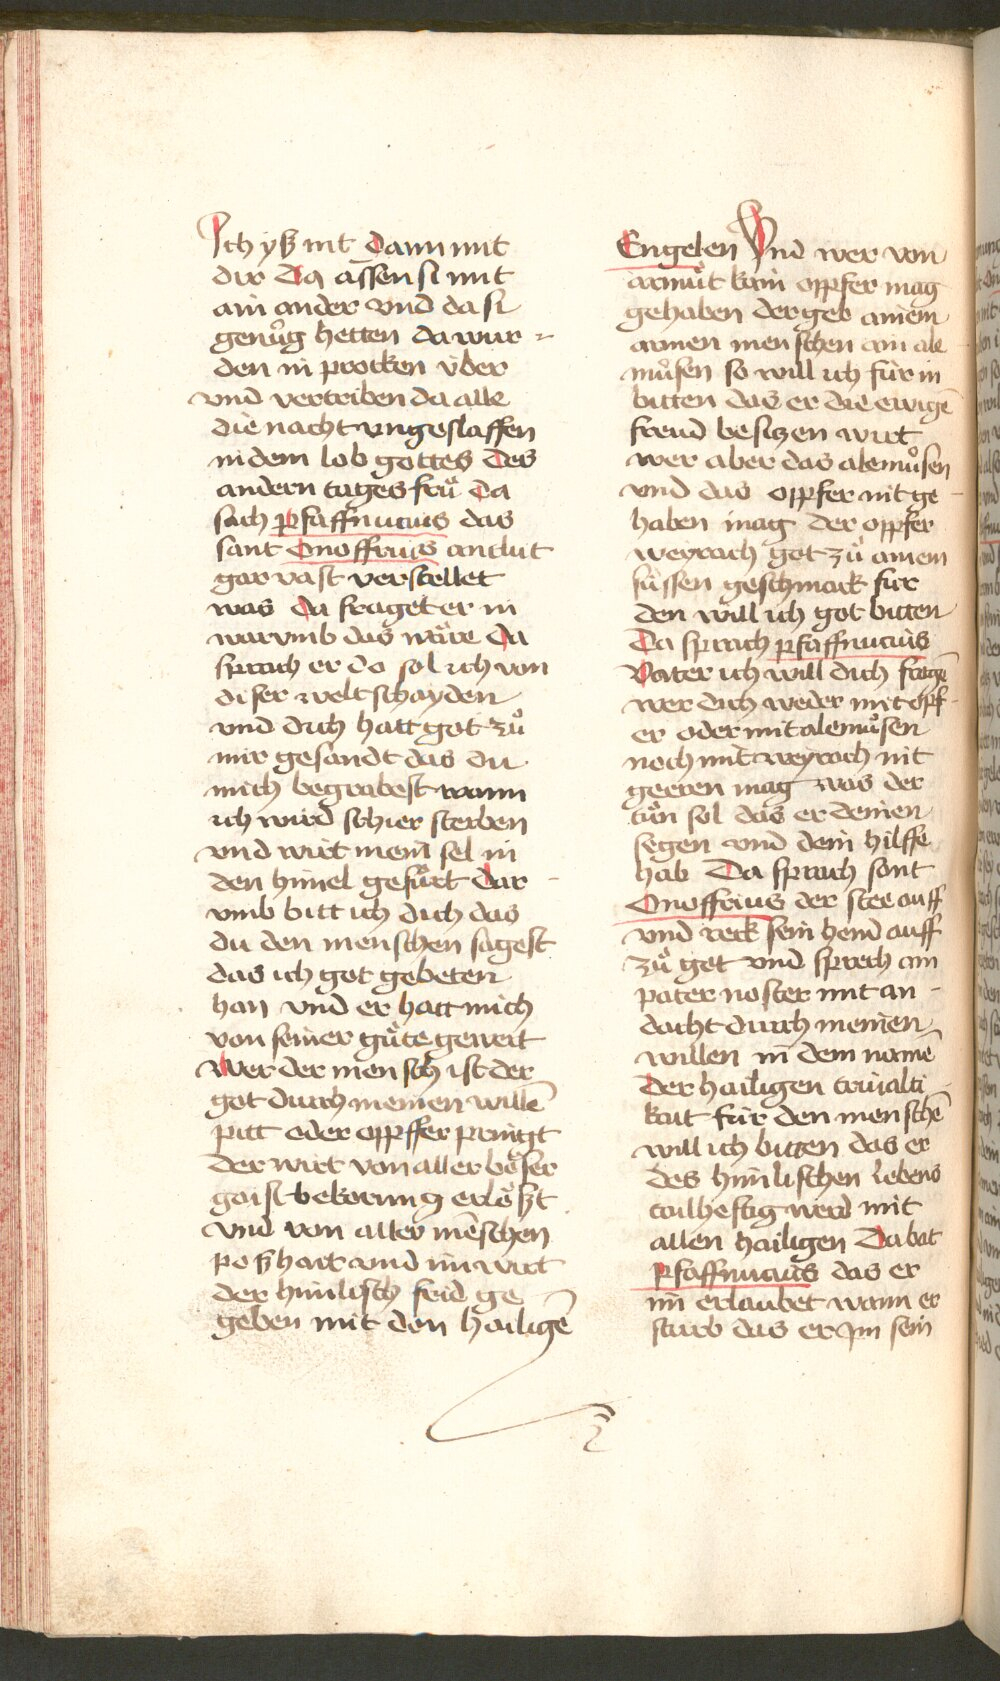 Ich yß nit Dann mit
dir Da assen si mit
ain ander vnd da si
genuͦg hetten da wur
den in procken v̈ber
vnd vertriben da alle
die nacht vngeslaffen
in dem lob gottes Des
andern tages fruͤ Da
sach pfaffnucius das
sant Onoffrius anclut
gar vast verstellet
was Da fraget er in
warumb das wäre Da
sprach er do sol ich von
diser welt schayden
vnd dich hatt got zuͦ
mir gesandt das du
mich begrabest wann
ich wird schier sterben
vnd wirt mein sel in
den himel gefuͤrt Dar
vmb bitt ich dich das
du den menschen sagest
das ich got gebeten
han vnd er hatt mich
von seiner guͤte gewert
Wer der mensch ist der
got durch meinen willē
pitt oder oppffer pringt
der wirt von aller boͤser
gaist bekorung erloͤszt
vnd von aller mēschen
poßhait vnd im wirt
der himlisch frid ge
geben mit den hailigē
Engelen Vnd wer von
armuͤt kain oppfer mag
gehaben der geb ainem
armen menschen ain ale
muͦsen so will ich für in
bitten das er die ewigē
freud besitzen wirt
wer aber das alemuͦsen
vnd das oppfer nit ge
haben mag der oppfer
weyrach got zuͦ ainem
süssen geschmack für
den will ich got bitten
Da sprach pfaffnucius
Vater ich will dich fragē
wer dich weder mit opff
er oder mit alemuͦsen
noch mit weyrach nit
geeren mag was der
tuͦn sol das er deinen
segen vnd dein hilffe
hab Da sprach sant
Onoffrius der stee auff
vnd reck sein hend auff
zuͦ got vnd sprech ain
pater noster mit an
dacht durch meinen
willen in dem namē
der hailigen triualti
kait für den menschē
will ich bitten das er
des himlischen lebens
tailhefftig werd mit
allen hailigen Da bat
pfaffnucius das er
im erlaubet wann er
sturb das er Im sein